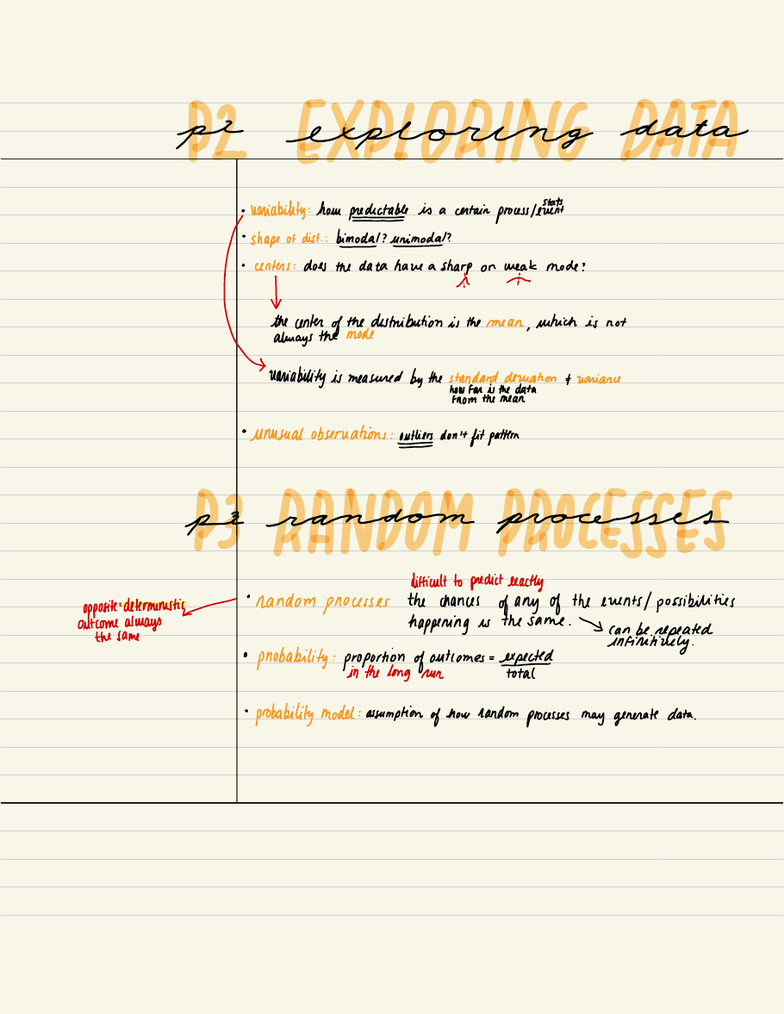 P2 EXPLORING DATA
p2 exploring data
• variability: how predictable is a certain process/event stats
• shape of dist.: bimodal? unimodal?
• centers: does the data have a sharp or weak mode?
the center of the distribution is the mean, which is not
always the mode
variability is measured by the standard deviation & variance
how far is the data
from the mean
• unusual observations: outliers don't fit pattern
P3 RANDOM PROCESSES
p3 random processes
difficult to predict exactly
• random processes the chances of any of the events/possibilities
happening is the same.
can be repeated
infinitively.
opposite=deterministic
outcome always
the same
• probability: proportion of outcomes = expected
in the long run total
• probability model: assumption of how random processes may generate data.